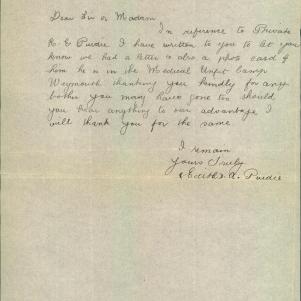 Dear Sir or Madam
In reference to Private
R. E Purdie I have written to you to let you
know we had a letter & also a photo card of
him he is in the Medical Unfit Camp
Weymouth thanking you kindly for any
bother you many have gone too should
you hear anything to our advantage I
will thank you for the same.
I remain
Yours Truly
Edith A. Purdie